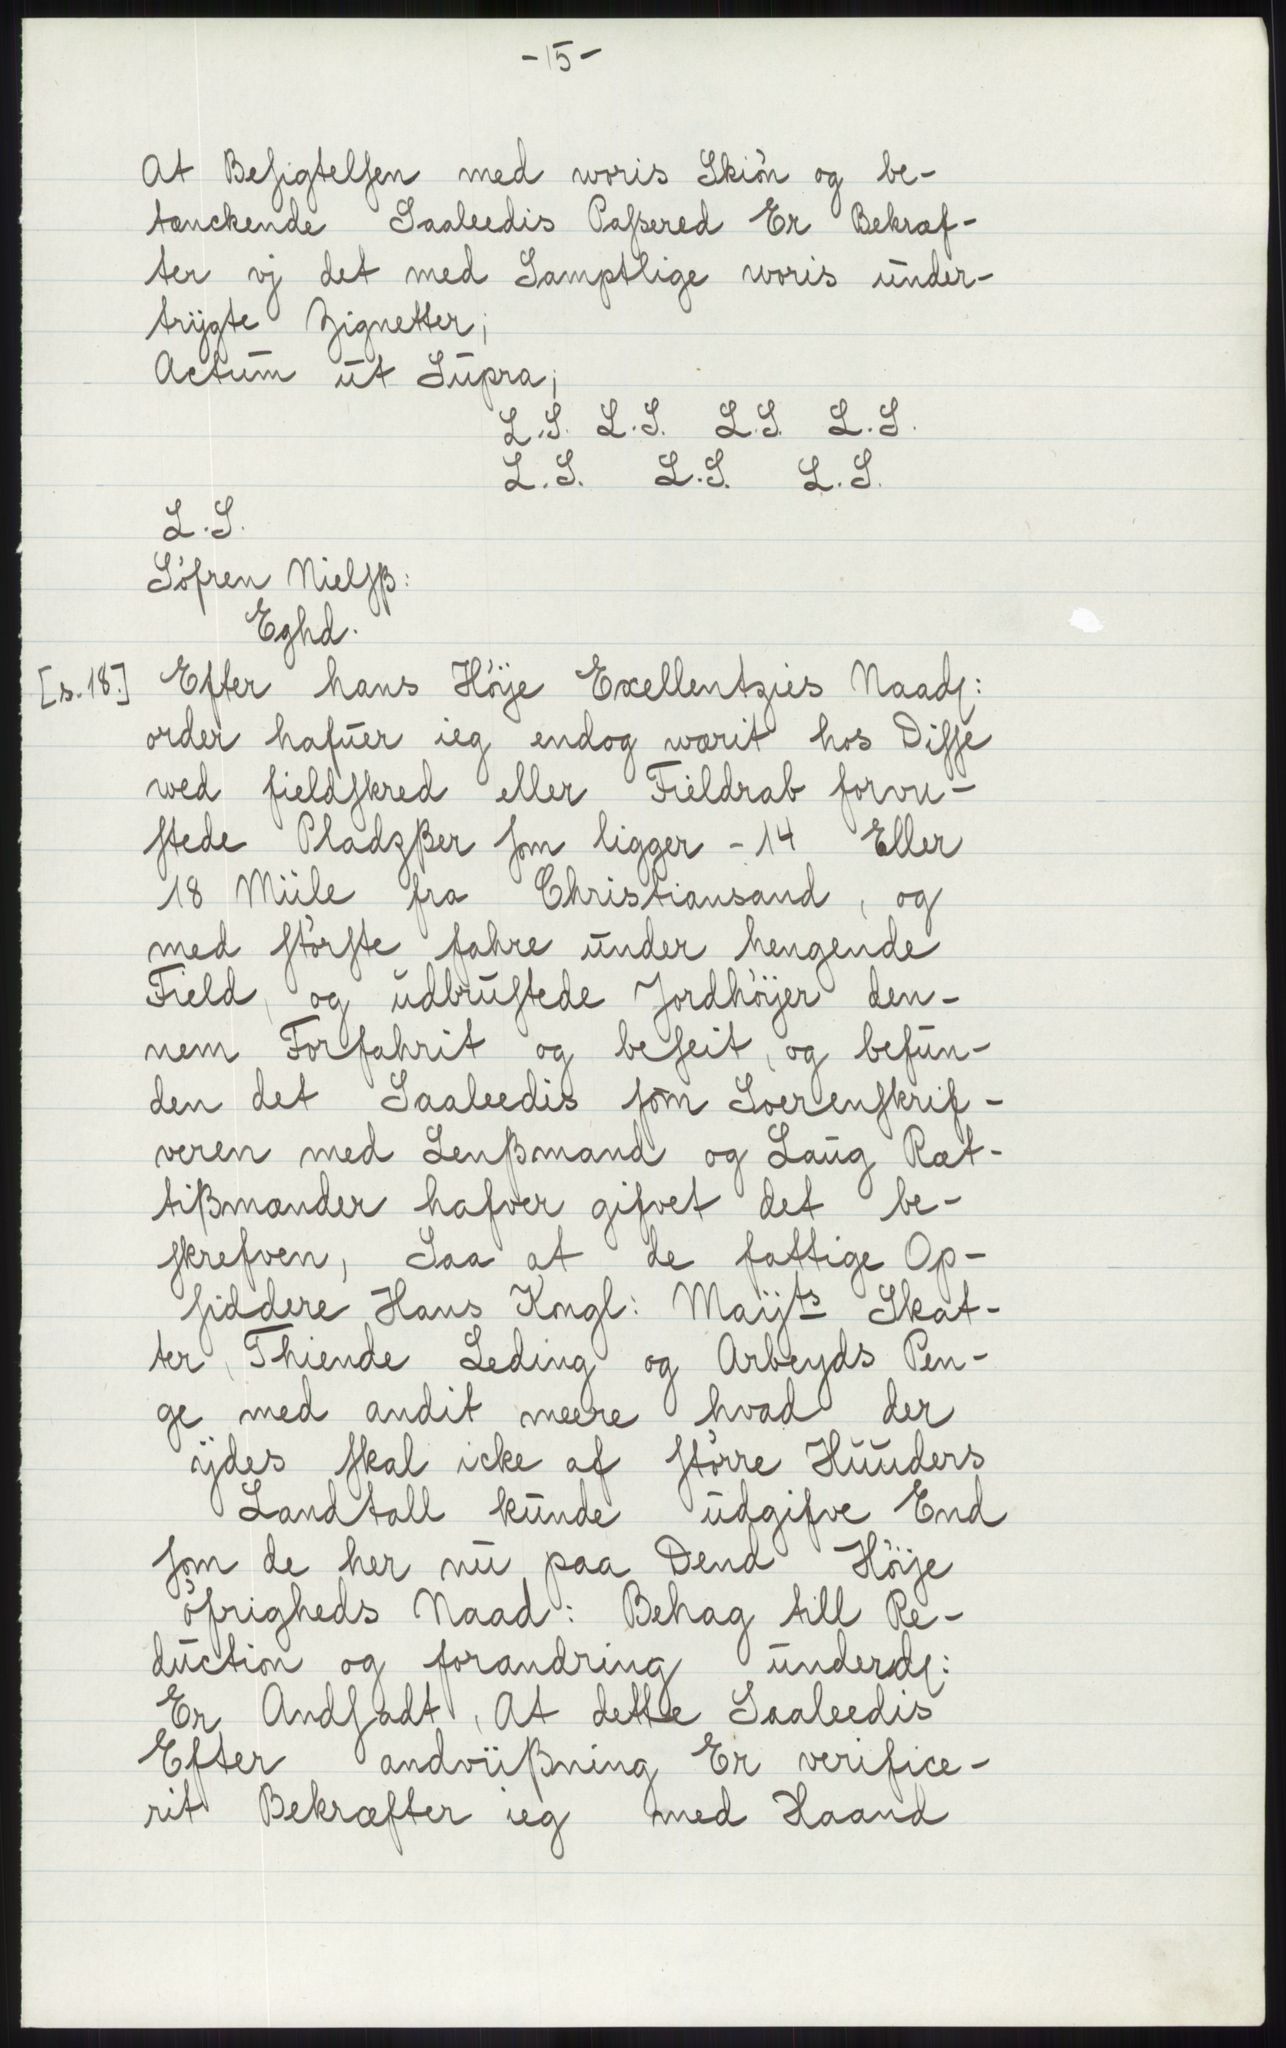 -15-
At Besigtelsen med woris Skiön og be-
tænckende Saaleedis Passered Er Bekræf-
ter vj det med Samptlige woris under-
trÿgte Zignetter;
Actum ut Supra;
L.S. L.S. L.S. L.S.
L.S. L.S. L.S.
L.S.
Söfren Nielsß:
Eghd.
[s.18.] Efter hans Höje Exellentzies Naad:
order hafuer ieg endog wærit hos Disse
wed fieldskred eller Fieldrab forvu-
stede Pladzßer som ligger - 14 Eller
18 Miile fra Christiansand, og
med störste fahre under hengende
Field, og udbrustede Jordhöÿer den-
nem Forfahrit og beseit, og befun-
den det Saaleedis som Soerenskrif-
veren med Lenßmand og Laug Ræt-
tißmænder hafver gifvet det be-
skrefven, Saa at de fattige Op-
siddere Hans Kongl: Maÿts Skat-
ter, Thiende Leding og Arbeyds Pen-
ge med andit meere hvad der
ÿdes skal icke af större Huuders
Landtall kunde udgifve End
som de her nu paa Dend Höje
öfrigheds Naad: Behag till Re-
duction og forandring underd:
Er Andsadt, At dette Saaleedis
Efter andviißning Er verifice-
rit Bekræfter ieg med Haand